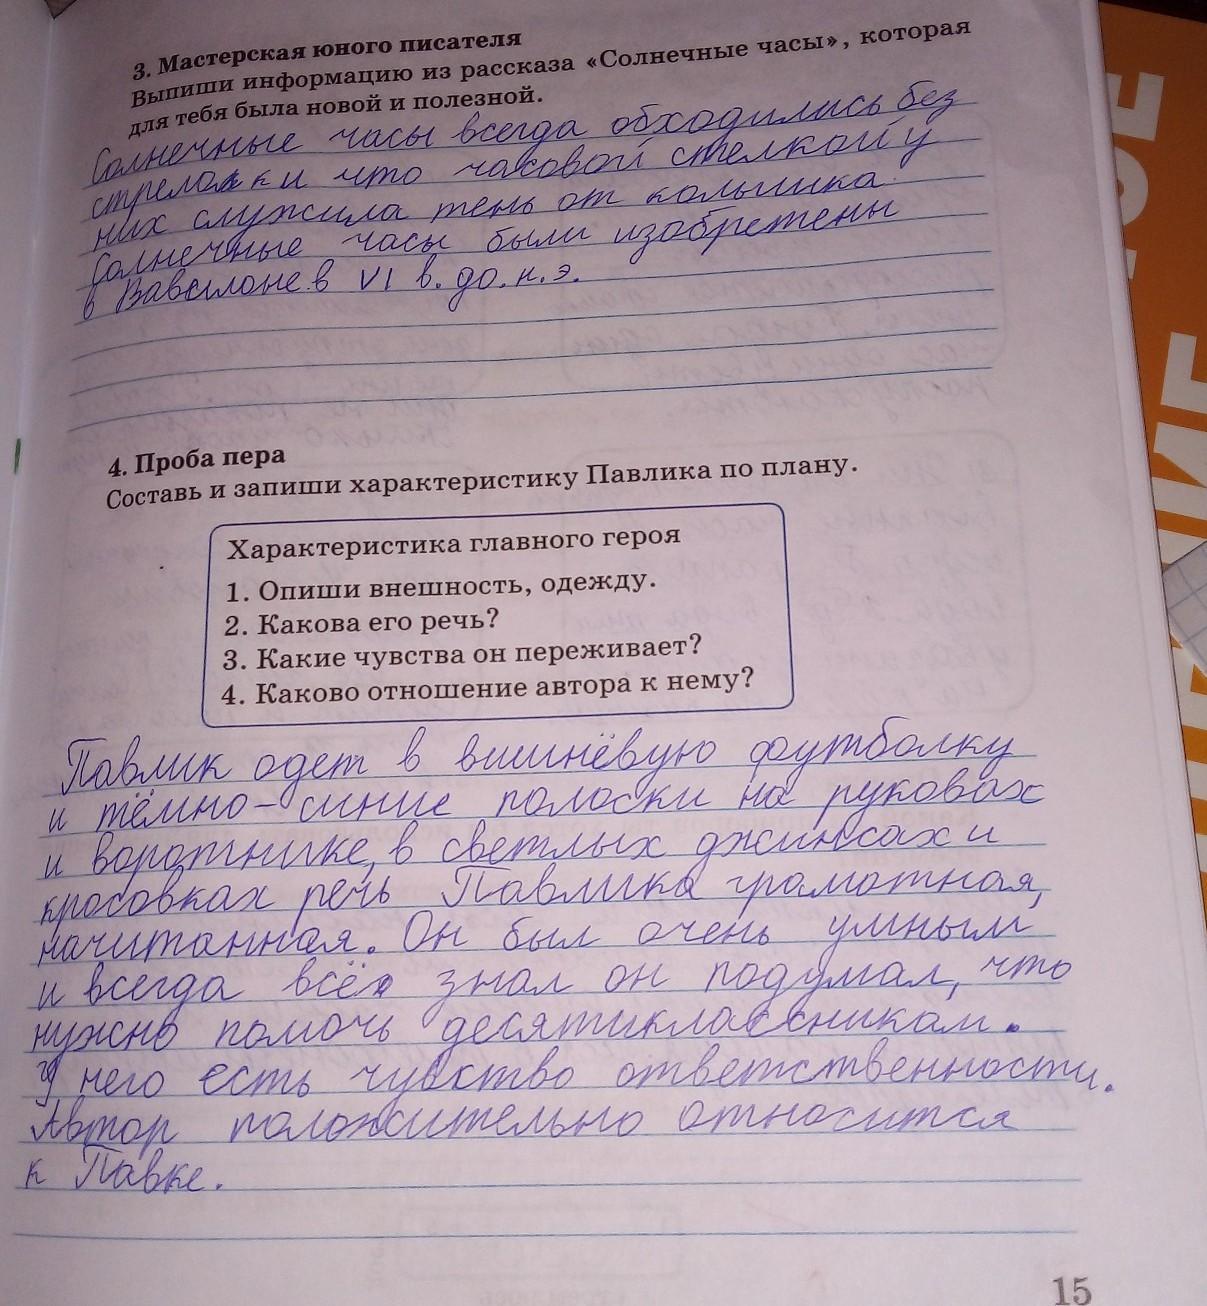 3. Мастерская юного писателя
Выпиши информацию из рассказа «Солнечные часы», которая
для тебя была новой и полезной.
Солнечные часы всегда обходились без
стрелки что часовой стелкой у
них служила тень от колышка
Солнечные часы были изобретены
в Вавилоне в VI в. до. н. э.
4. Проба пера
Составь и запиши характеристику Павлика по плану.
Характеристика главного героя
1. Опиши внешность, одежду.
2. Какова его речь?
3. Какие чувства он переживает?
4. Каково отношение автора к нему?
Павлик одет в вишнёвую футболку
и тёмно-синие полоски на руковах
и воротнике, в светлых джинсах и
кросовках речь Павлика грамотная,
начитанная. Он был очень умным
и всегда всё знал он подумал, что
нужно помочь десятиклассникам.
У него есть чувство ответственности.
Автор положительно относится
к Павке.
15